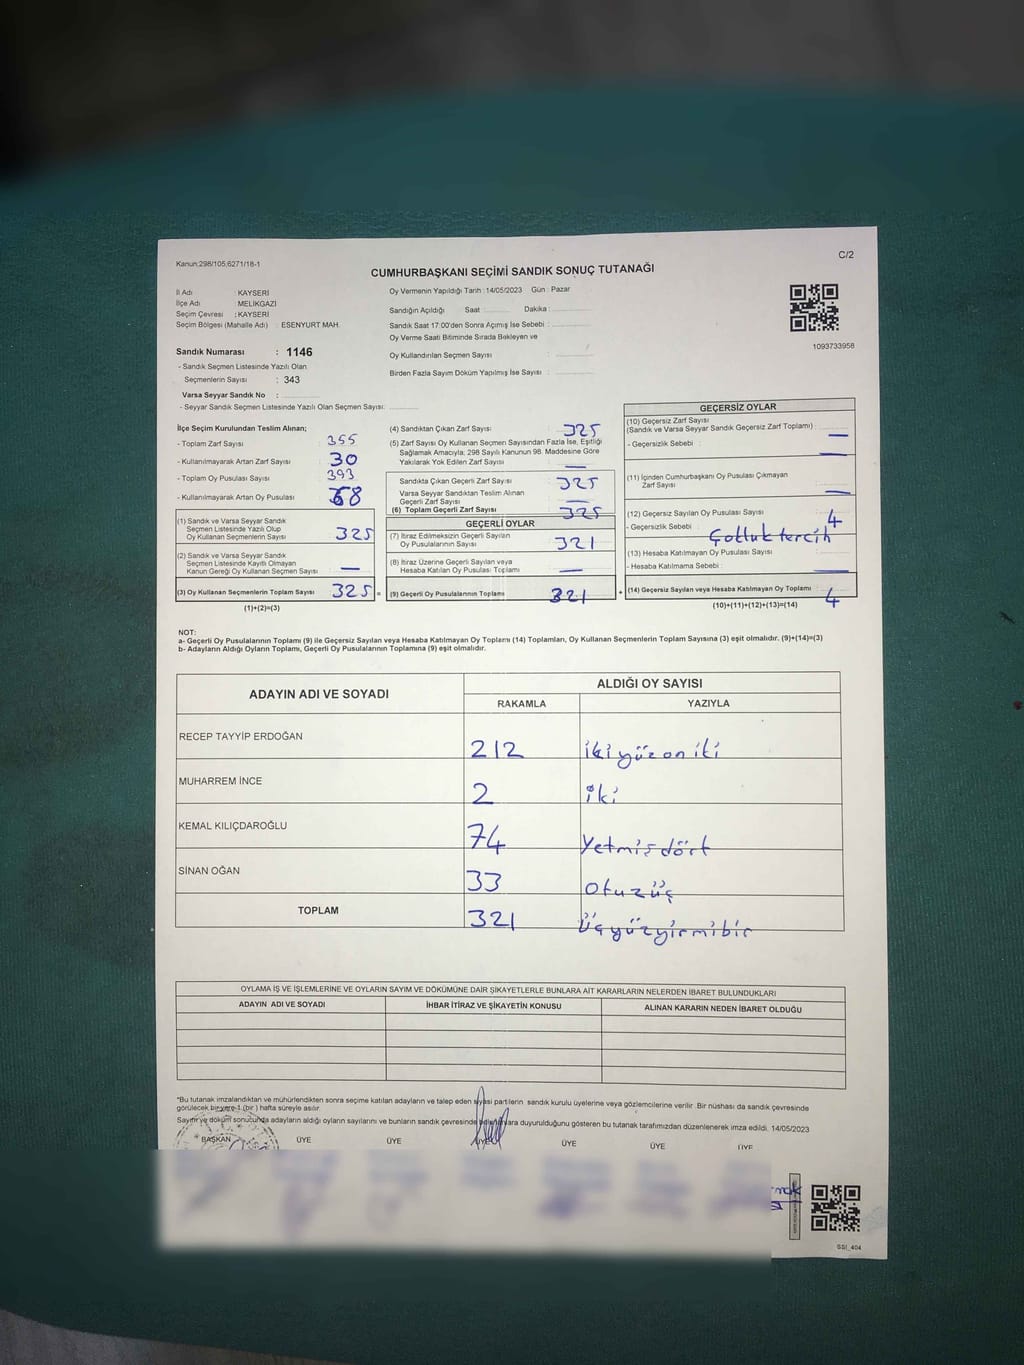 Kanun;298/105,6271/18-1
C/2
CUMHURBAŞKANI SEÇİMİ SANDIK SONUÇ TUTANAĞI
İl Adı : KAYSERİ
İlçe Adı : MELİKGAZİ
Seçim Çevresi : KAYSERİ
Seçim Bölgesi (Mahalle Adı) : ESENYURT MAH.
Sandık Numarası : 1146
- Sandık Seçmen Listesinde Yazılı Olan
Seçmenlerin Sayısı : 343
Varsa Seyyar Sandık No :
- Seyyar Sandık Seçmen Listesinde Yazılı Olan Seçmen Sayısı:
Oy Vermenin Yapıldığı Tarih : 14/05/2023 Gün : Pazar
Sandığın Açıldığı Saat Dakika :
Sandık Saat 17:00'den Sonra Açımış İse Sebebi :
Oy Verme Saati Bitiminde Sırada Bekleyen ve
Oy Kullandırılan Seçmen Sayısı :
Birden Fazla Sayım Döküm Yapılmış İse Sayısı :
1093733958
İlçe Seçim Kurulundan Teslim Alınan;
- Toplam Zarf Sayısı : 355
- Kullanılmayarak Artan Zarf Sayısı : 30
- Toplam Oy Pusulası Sayısı : 393
- Kullanılmayarak Artan Oy Pusulası : 68
(1) Sandık ve Varsa Seyyar Sandık
Seçmen Listesinde Yazılı Olup
Oy Kullanan Seçmenlerin Sayısı : 325
(2) Sandık ve Varsa Seyyar Sandık
Seçmen Listesinde Kayıtlı Olmayan
Kanun Gereği Oy Kullanan Seçmen Sayısı : —
(3) Oy Kullanan Seçmenlerin Toplam Sayısı 325 =
(1)+(2)=(3)
(4) Sandıktan Çıkan Zarf Sayısı : 325
(5) Zarf Sayısı Oy Kullanan Seçmen Sayısından Fazla İse, Eşitliği
Sağlamak Amacıyla; 298 Sayılı Kanunun 98. Maddesine Göre
Yakılarak Yok Edilen Zarf Sayısı : —
Sandıkta Çıkan Geçerli Zarf Sayısı : 325
Varsa Seyyar Sandıktan Teslim Alınan
Geçerli Zarf Sayısı : —
(6) Toplam Geçerli Zarf Sayısı : 325
GEÇERLİ OYLAR
(7) İtiraz Edilmeksizin Geçerli Sayılan
Oy Pusulalarının Sayısı : 321
(8) İtiraz Üzerine Geçerli Sayılan veya
Hesaba Katılan Oy Pusulası Toplamı : —
(9) Geçerli Oy Pusulalarının Toplamı : 321 +
GEÇERSİZ OYLAR
(10) Geçersiz Zarf Sayısı
(Sandık ve Varsa Seyyar Sandık Geçersiz Zarf Toplamı) : —
- Geçersizlik Sebebi : —
(11) İçinden Cumhurbaşkanı Oy Pusulası Çıkmayan
Zarf Sayısı : —
(12) Geçersiz Sayılan Oy Pusulası Sayısı : 4
- Geçersizlik Sebebi : Çotluk tercih
(13) Hesaba Katılmayan Oy Pusulası Sayısı :
- Hesaba Katılmama Sebebi : —
(14) Geçersiz Sayılan veya Hesaba Katılmayan Oy Toplamı : 4
(10)+(11)+(12)+(13)=(14)
NOT:
a- Geçerli Oy Pusulalarının Toplamı (9) ile Geçersiz Sayılan veya Hesaba Katılmayan Oy Toplamı (14) Toplamları, Oy Kullanan Seçmenlerin Toplam Sayısına (3) eşit olmalıdır. (9)+(14)=(3)
b- Adayların Aldığı Oyların Toplamı, Geçerli Oy Pusulalarının Toplamına (9) eşit olmalıdır.
ADAYIN ADI VE SOYADI ALDIĞI OY SAYISI
RAKAMLA YAZIYLA
RECEP TAYYİP ERDOĞAN 212 ikiyüzoniki
MUHARREM İNCE 2 iki
KEMAL KILIÇDAROĞLU 74 Yetmişdört
SİNAN OĞAN 33 Otuzüç
TOPLAM 321 Üçyüzyirmibir
OYLAMA İŞ VE İŞLEMLERİNE VE OYLARIN SAYIM VE DÖKÜMÜNE DAİR ŞİKAYETLERLE BUNLARA AİT KARARLARIN NELERDEN İBARET BULUNDUKLARI
ADAYIN ADI VE SOYADI İHBAR İTİRAZ VE ŞİKAYETİN KONUSU ALINAN KARARIN NEDEN İBARET OLDUĞU
*Bu tutanak imzalandıktan ve mühürlendikten sonra seçime katılan adayların ve talep eden siyasi partilerin sandık kurulu üyelerine veya gözlemcilerine verilir. Bir nüshası da sandık çevresinde
görülecek bir yere 1 (bir ) hafta süreyle asılır.
Sayım ve döküm sonucunda adayların aldığı oyların sayılarını ve bunların sandık çevresinde duyurulduğunu gösteren bu tutanak tarafımızdan düzenlenerek imza edildi. 14/05/2023
BAŞKAN ÜYE ÜYE ÜYE ÜYE ÜYE ÜYE
SSİ_404